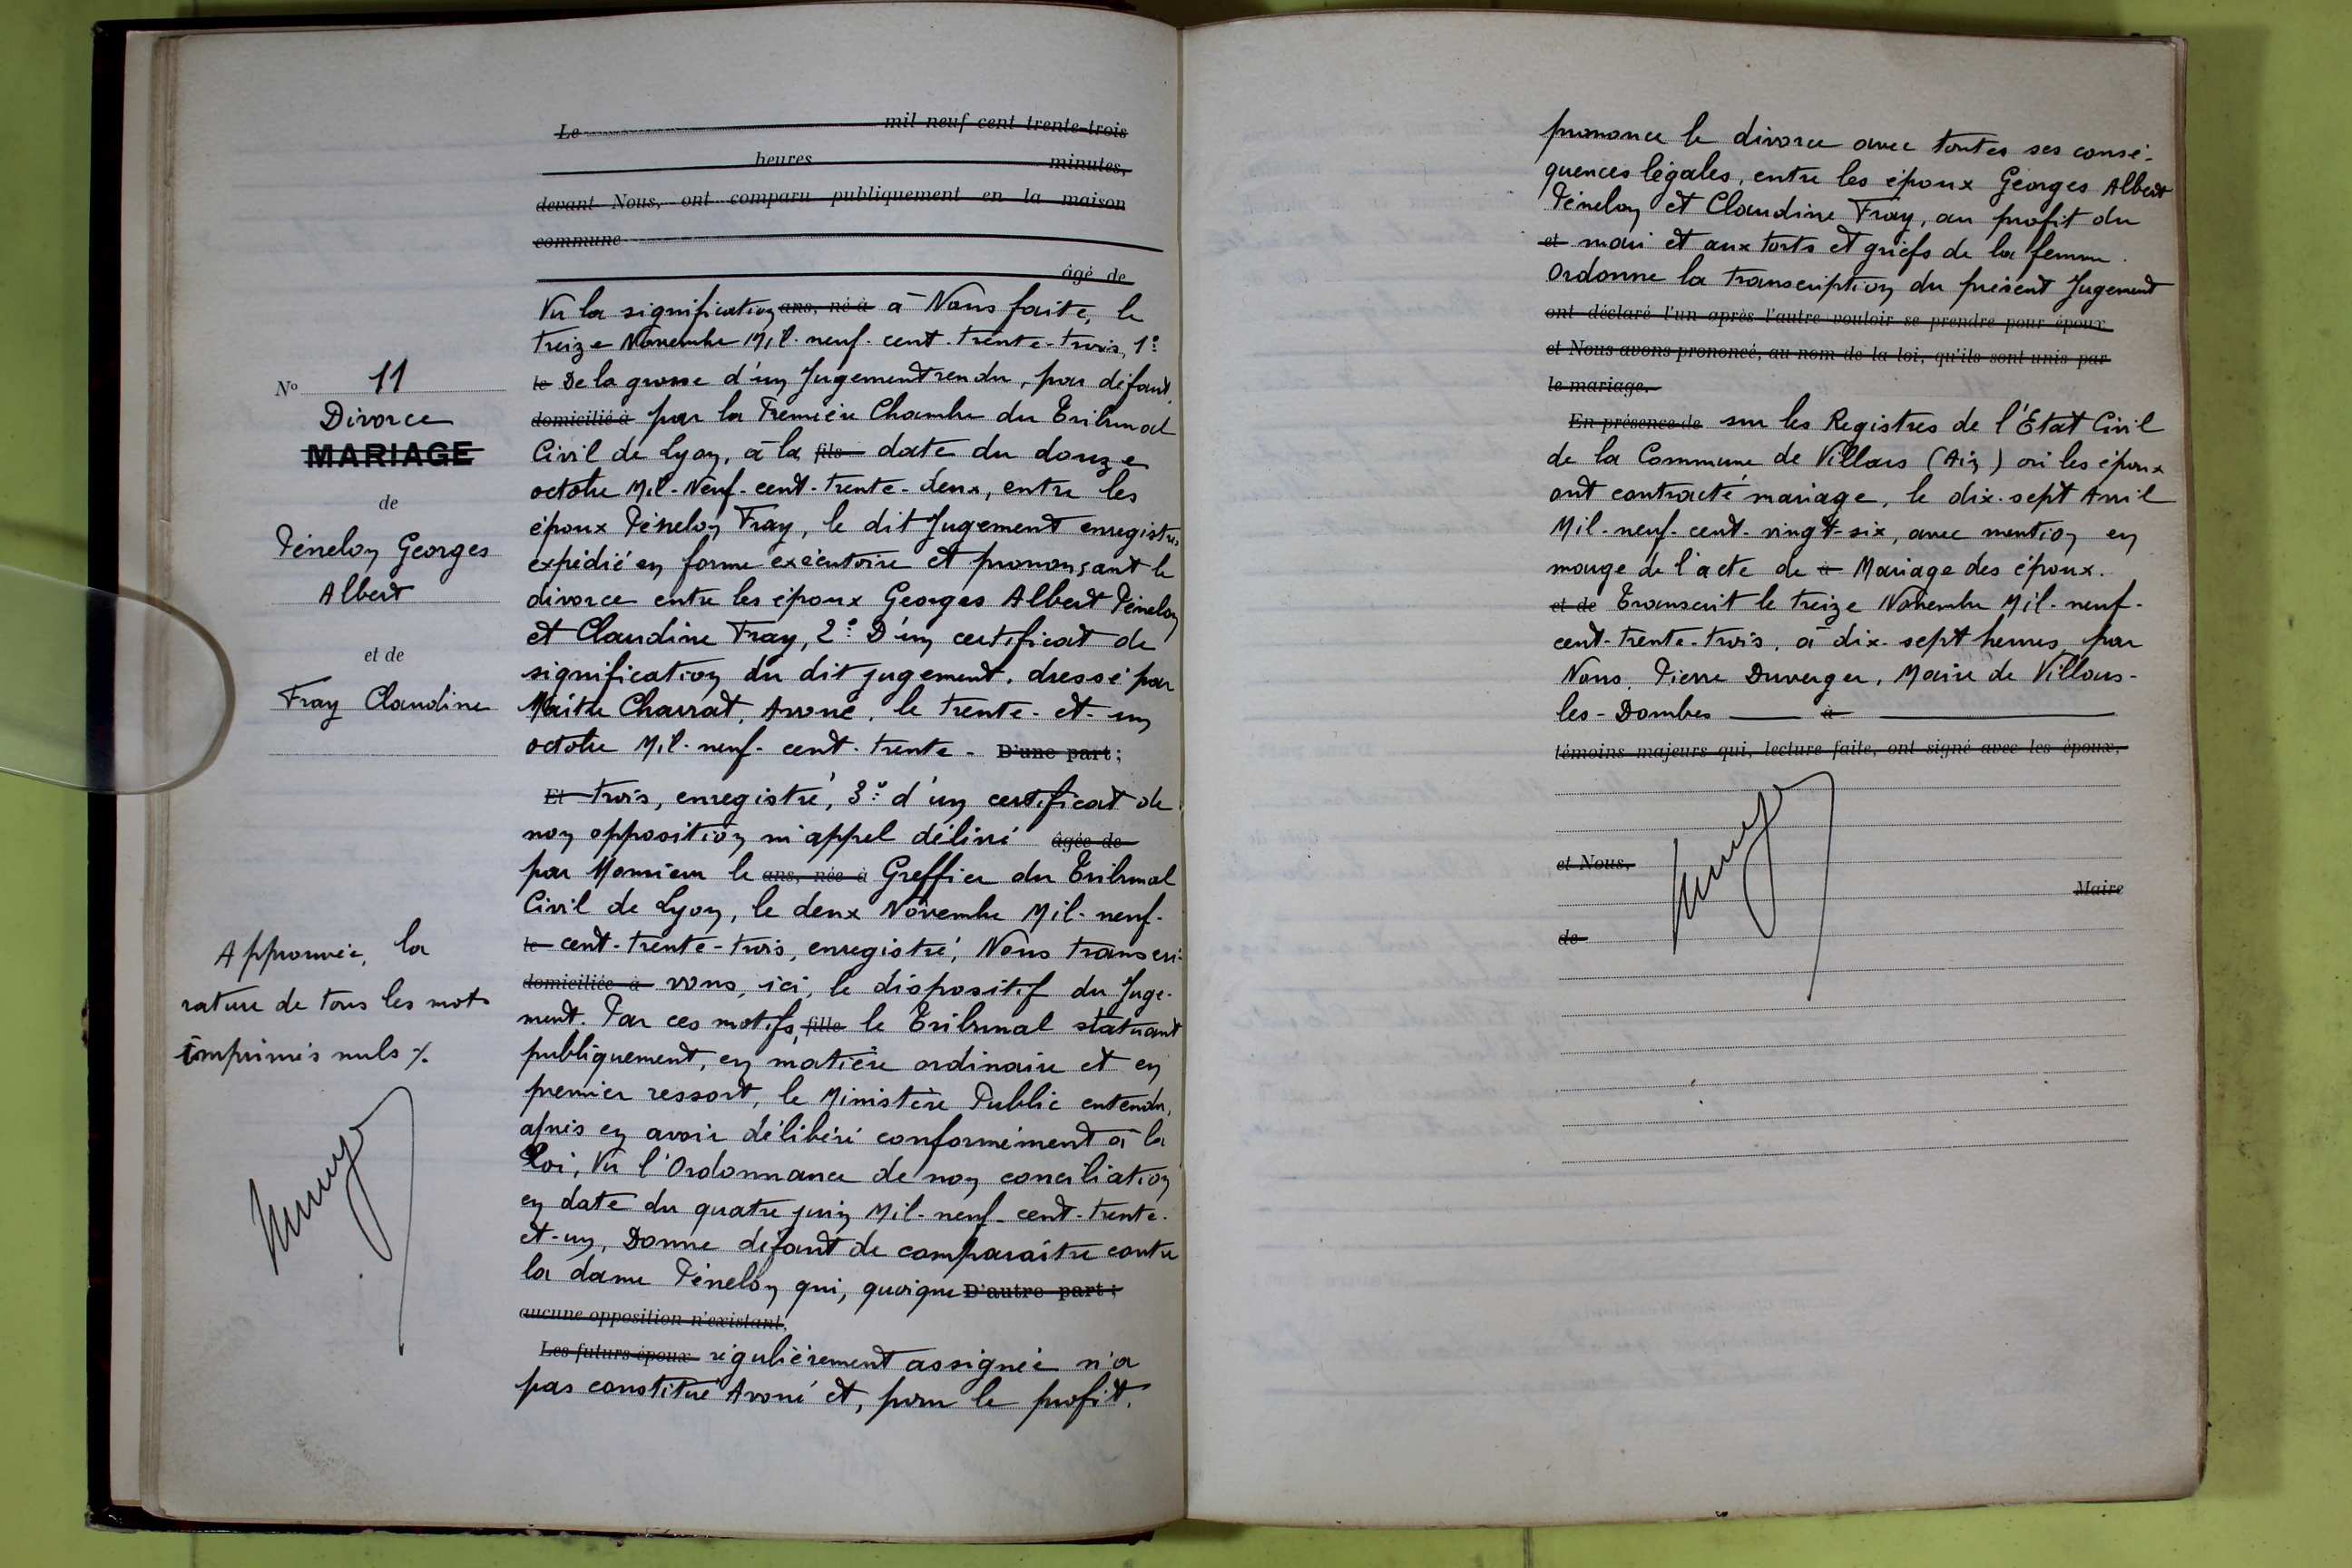 Le mil neuf cent trente-trois
heures minutes,
devant Nous, ont comparu publiquement en la maison
commune
âgé de
Vu la signification ans, né à à Nous faite, le
treize Novembre Mil-neuf-cent-trente-trois, 1º
le De la grosse d'un Jugement rendu, par défaut,
domicilié à par la Première Chambre du Tribunal
Civil de Lyon, à la fils date du douze
octobre Mil-Neuf-cent-trente-deux, entre les
époux Pénelon Fray, le dit Jugement enregistré,
expédié en forme exécutoire et prononçant le
divorce entre les époux Georges Albert Pénelon
et Claudine Fray, 2º D'un certificat de
signification du dit jugement, dressé par
Maître Charrat, Avoué, le trente-et-un
octobre Mil-neuf-cent-trente- D'une part;
Et trois, enregistré, 3º d'un certificat de
non opposition ni appel délivré âgée de
par Monsieur le ans, née à Greffier du Tribunal
Civil de Lyon, le deux Novembre Mil-neuf-
le cent-trente-trois, enregistré, Nous transcri-
domiciliée à vons, ici, le dispositif du Juge-
ment. Par ces motifs, fille le Tribunal statuant
publiquement, en matière ordinaire et en
premier ressort, le Ministère Public entendu,
après en avoir délibéré conformément à la
Loi, Vu l'Ordonnance de non conciliation
en date du quatre juin Mil-neuf-cent-trente-
et-un, Donne défaut de comparaître contre
la dame Pénelon qui, quoique D'autre part;
aucune opposition n'existant.
Les futurs époux régulièrement assignée n'a
pas constitué Avoué et, pour le profit,
Nº 11
Divorce
MARIAGE
de
Pénelon Georges
Albert
et de
Fray Claudine
Approuvée, la
rature de tous les mots
imprimés nuls %.
prononce le divorce avec toutes ses consé-
quences légales, entre les époux Georges Albert
Pénelon et Claudine Fray, au profit du
et mari et aux torts et griefs de la femme.
Ordonne la transcription du présent Jugement
ont déclaré l'un après l'autre vouloir se prendre pour époux
et Nous avons prononcé, au nom de la loi, qu'ils sont unis par
le mariage.
En présence de sur les Registres de l'État Civil
de la Commune de Villars (Ain) où les époux
ont contracté mariage, le dix-sept Avril
Mil-neuf-cent-vingt-six, avec mention en
marge de l'acte de à Mariage des époux.
et de Transcrit le treize Novembre Mil-neuf-
cent-trente-trois, à dix-sept heures, par
Nous, Pierre Duverger, Maire de Villars-
les-Dombes à
témoins majeurs qui, lecture faite, ont signé avec les époux,
et Nous,
Maire
de